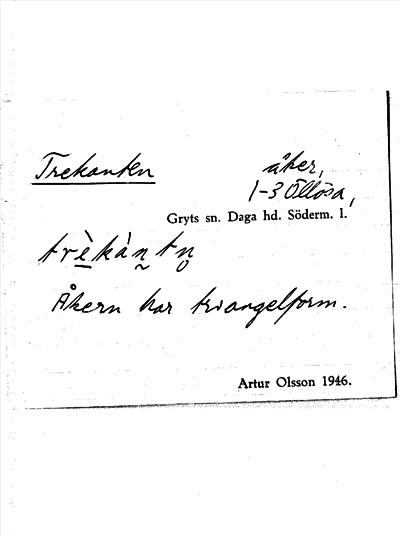 Trekanten
åker,
1-3 Öllösa,
Gryts sn. Daga hd. Söderm. l.
trè̱kàn̰tn̥
Åkern har triangelform.
Artur Olsson 1946.